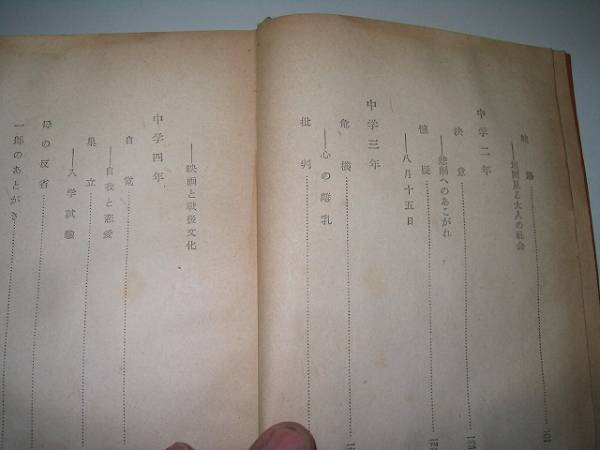 ——垣間見る大人の社会
中学二年
決意
——悲劇へのあこがれ
懐疑
——八月十五日
中学三年
危機
——心の離乳
批判
——映画と戦後文化
中学四年
自覚
——自我と恋愛
巣立
——入学試験
母の反省
一郎のあとがき